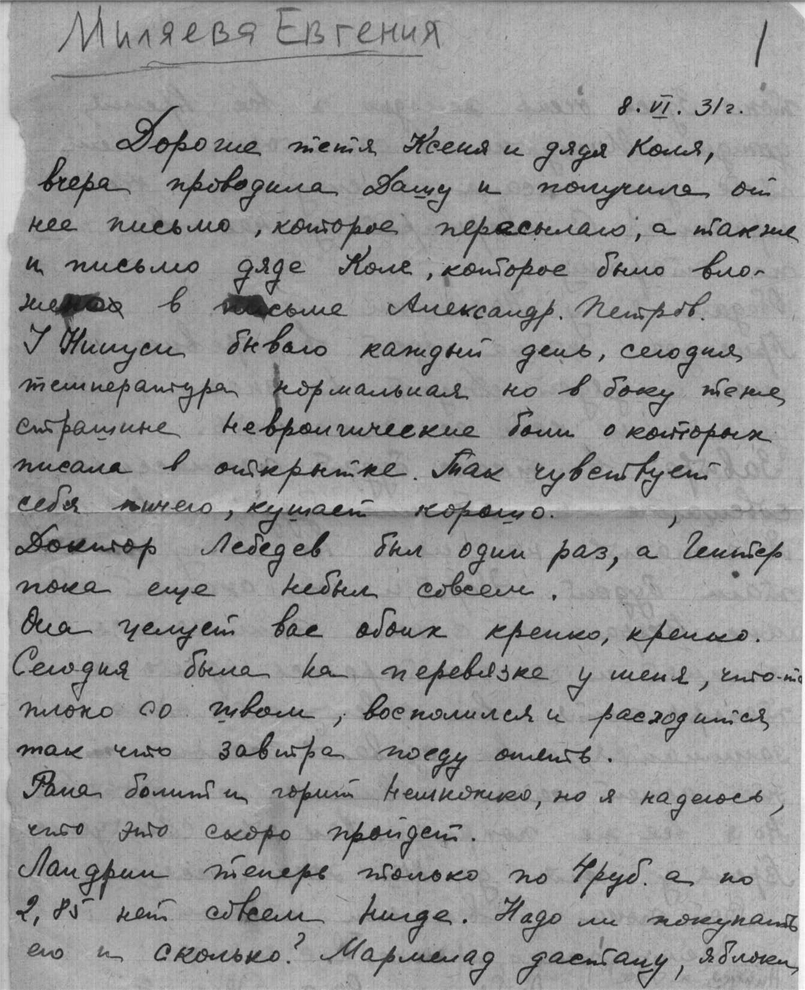 Миляева Евгения
1
8. VI. 31 г.
Дорогие тетя Ксеня и дядя Коля,
вчера проводила Дашу и получила от
нее письмо, которое пересылаю, а также
и письмо дяде Коле, которое было вло-
жено в письме Александр. Петров.
У Нинуси бываю каждый день, сегодня
температура нормальная но в боку те же
страшные невролгические боли о которых
писала в открытке. Так чувствует
себя ничего, кушает хорошо.
Доктор Лебедев был один раз, а Гентер
пока еще небыл совсем.
Она целует вас обоих крепко, крепко.
Сегодня была на перевязке у меня, что-то
плохо со швом, воспалился и расходится
так что завтра поеду опять.
Рана болит и горит немножко, но я надеюсь,
что это скоро пройдет.
Ландрин теперь только по 4 руб. а по
2,85 нет совсем нигде. Надо ли покупать
его и сколько? Мармелад достану, яблоки